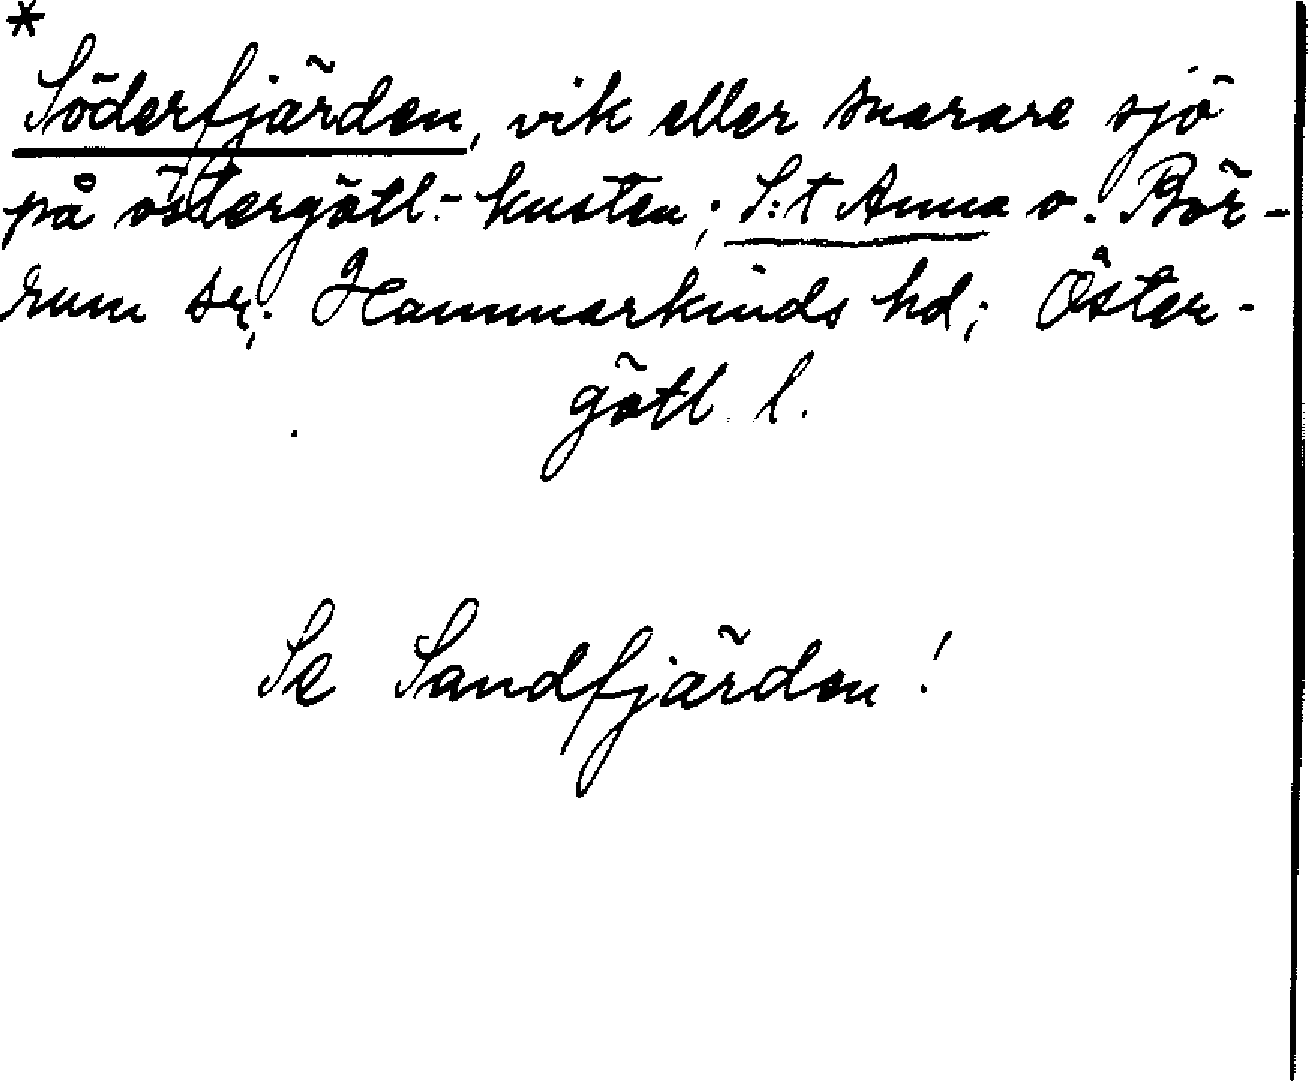 *
Söderfjärden, vik eller snarare sjö
på östergötl.- kusten; S:t Anna o. Bör-
rum sr; Hammarkinds hd; Öster-
götl. l.
Se Sandfjärden!